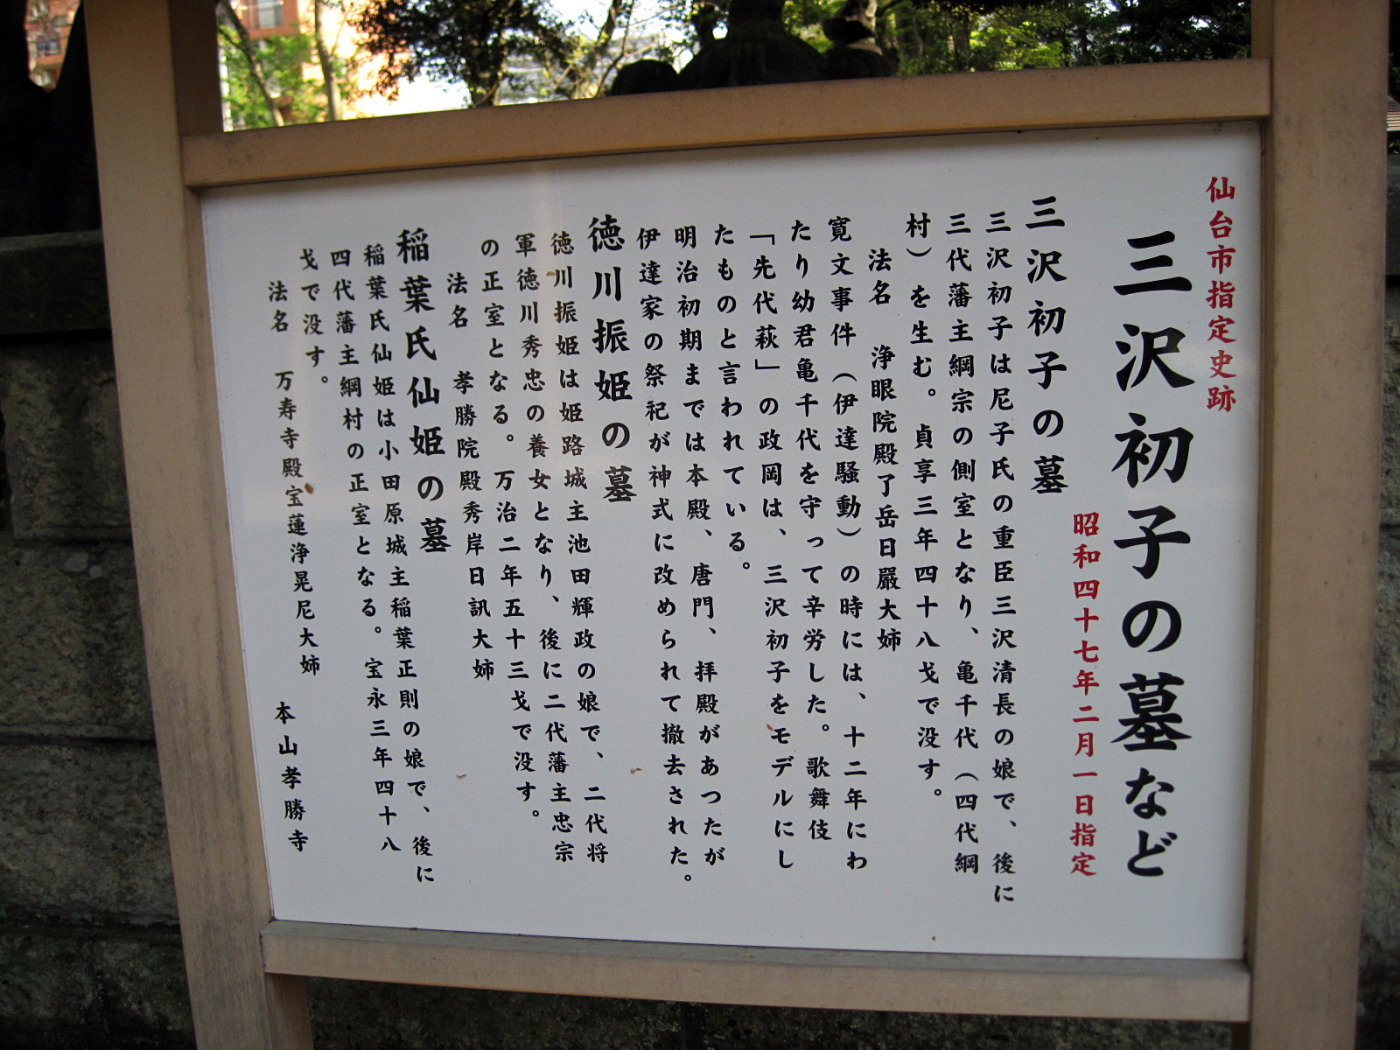 仙台市指定史跡
三沢初子の墓など
昭和四十七年二月一日指定
三沢初子の墓
三沢初子は尼子氏の重臣三沢清長の娘で、後に
三代藩主綱宗の側室となり、亀千代（四代綱
村）を生む。貞享三年四十八戈で没す。
法名　浄眼院殿了岳日嚴大姉
寛文事件（伊達騒動）の時には、十二年にわ
たり幼君亀千代を守って辛労した。歌舞伎
「先代萩」の政岡は、三沢初子をモデルにし
たものと言われている。
明治初期までは本殿、唐門、拝殿があつたが
伊達家の祭祀が神式に改められて撤去された。
徳川振姫の墓
徳川振姫は姫路城主池田輝政の娘で、二代将
軍徳川秀忠の養女となり、後に二代藩主忠宗
の正室となる。万治二年五十三戈で没す。
法名　孝勝院殿秀岸日訊大姉
稲葉氏仙姫の墓
稲葉氏仙姫は小田原城主稲葉正則の娘で、後に
四代藩主綱村の正室となる。宝永三年四十八
戈で没す。
法名　万寿寺殿宝蓮浄晃尼大姉
本山孝勝寺